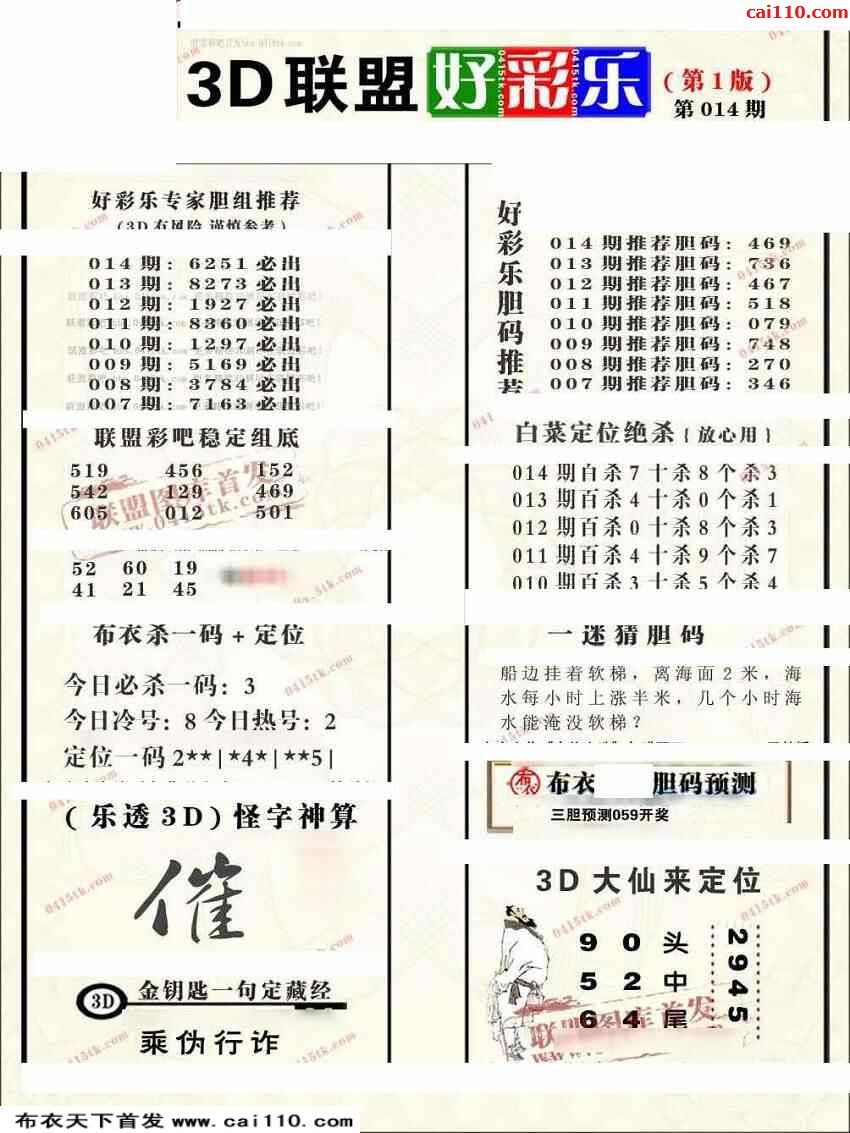 cai110.com
3D联盟好彩乐
(第1版)
第014期
好彩乐专家胆组推荐
(3D有风险 谨慎参考)
014期: 6251必出
013期: 8273必出
012期: 1927必出
011期: 8360必出
010期: 1297必出
009期: 5169必出
008期: 3784必出
007期: 7163必出
联盟彩吧稳定组底
519 456 152
542 129 469
605 012 501
联盟图库首发
www.0415tk.com
52 60 19
41 21 45
布衣杀一码+定位
今日必杀一码: 3
今日冷号: 8 今日热号: 2
定位一码 2**|*4*|**5|
(乐透3D)怪字神算
催
3D 金钥匙一句定藏经
乘伪行诈
好彩乐胆码推荐
014期推荐胆码: 469
013期推荐胆码: 736
012期推荐胆码: 467
011期推荐胆码: 518
010期推荐胆码: 079
009期推荐胆码: 748
008期推荐胆码: 270
007期推荐胆码: 346
白菜定位绝杀{放心用}
014期百杀7十杀8个杀3
013期百杀4十杀0个杀1
012期百杀0十杀8个杀3
011期百杀4十杀9个杀7
010期百杀3十杀5个杀4
一迷猜胆码
船边挂着软梯，离海面2米，海
水每小时上涨半米，几个小时海
水能淹没软梯？
布衣 胆码预测
三胆预测059开奖
3D大仙来定位
9 0 头
5 2 中
6 4 尾
2945
联盟图库首发
布衣天下首发 www.cai110.com